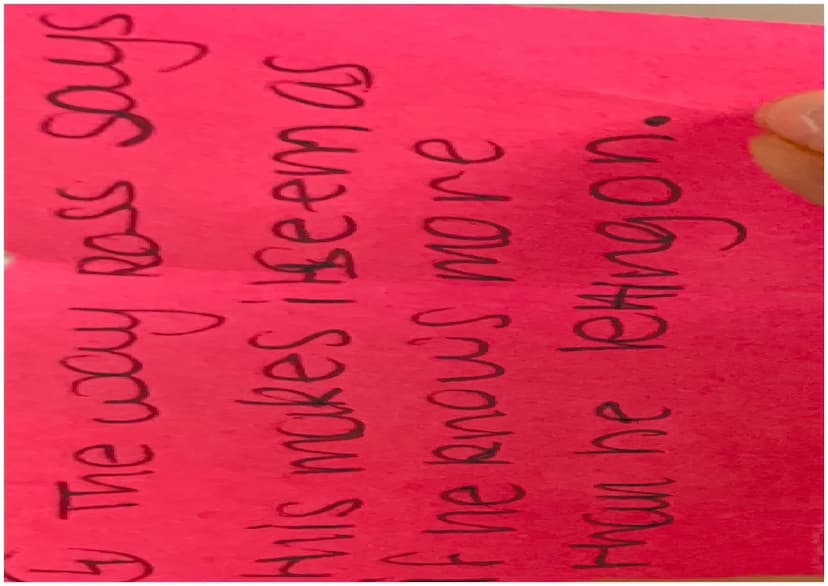 ↳ The way Ross says
this makes it seem as
if he knows more
than he letting on.